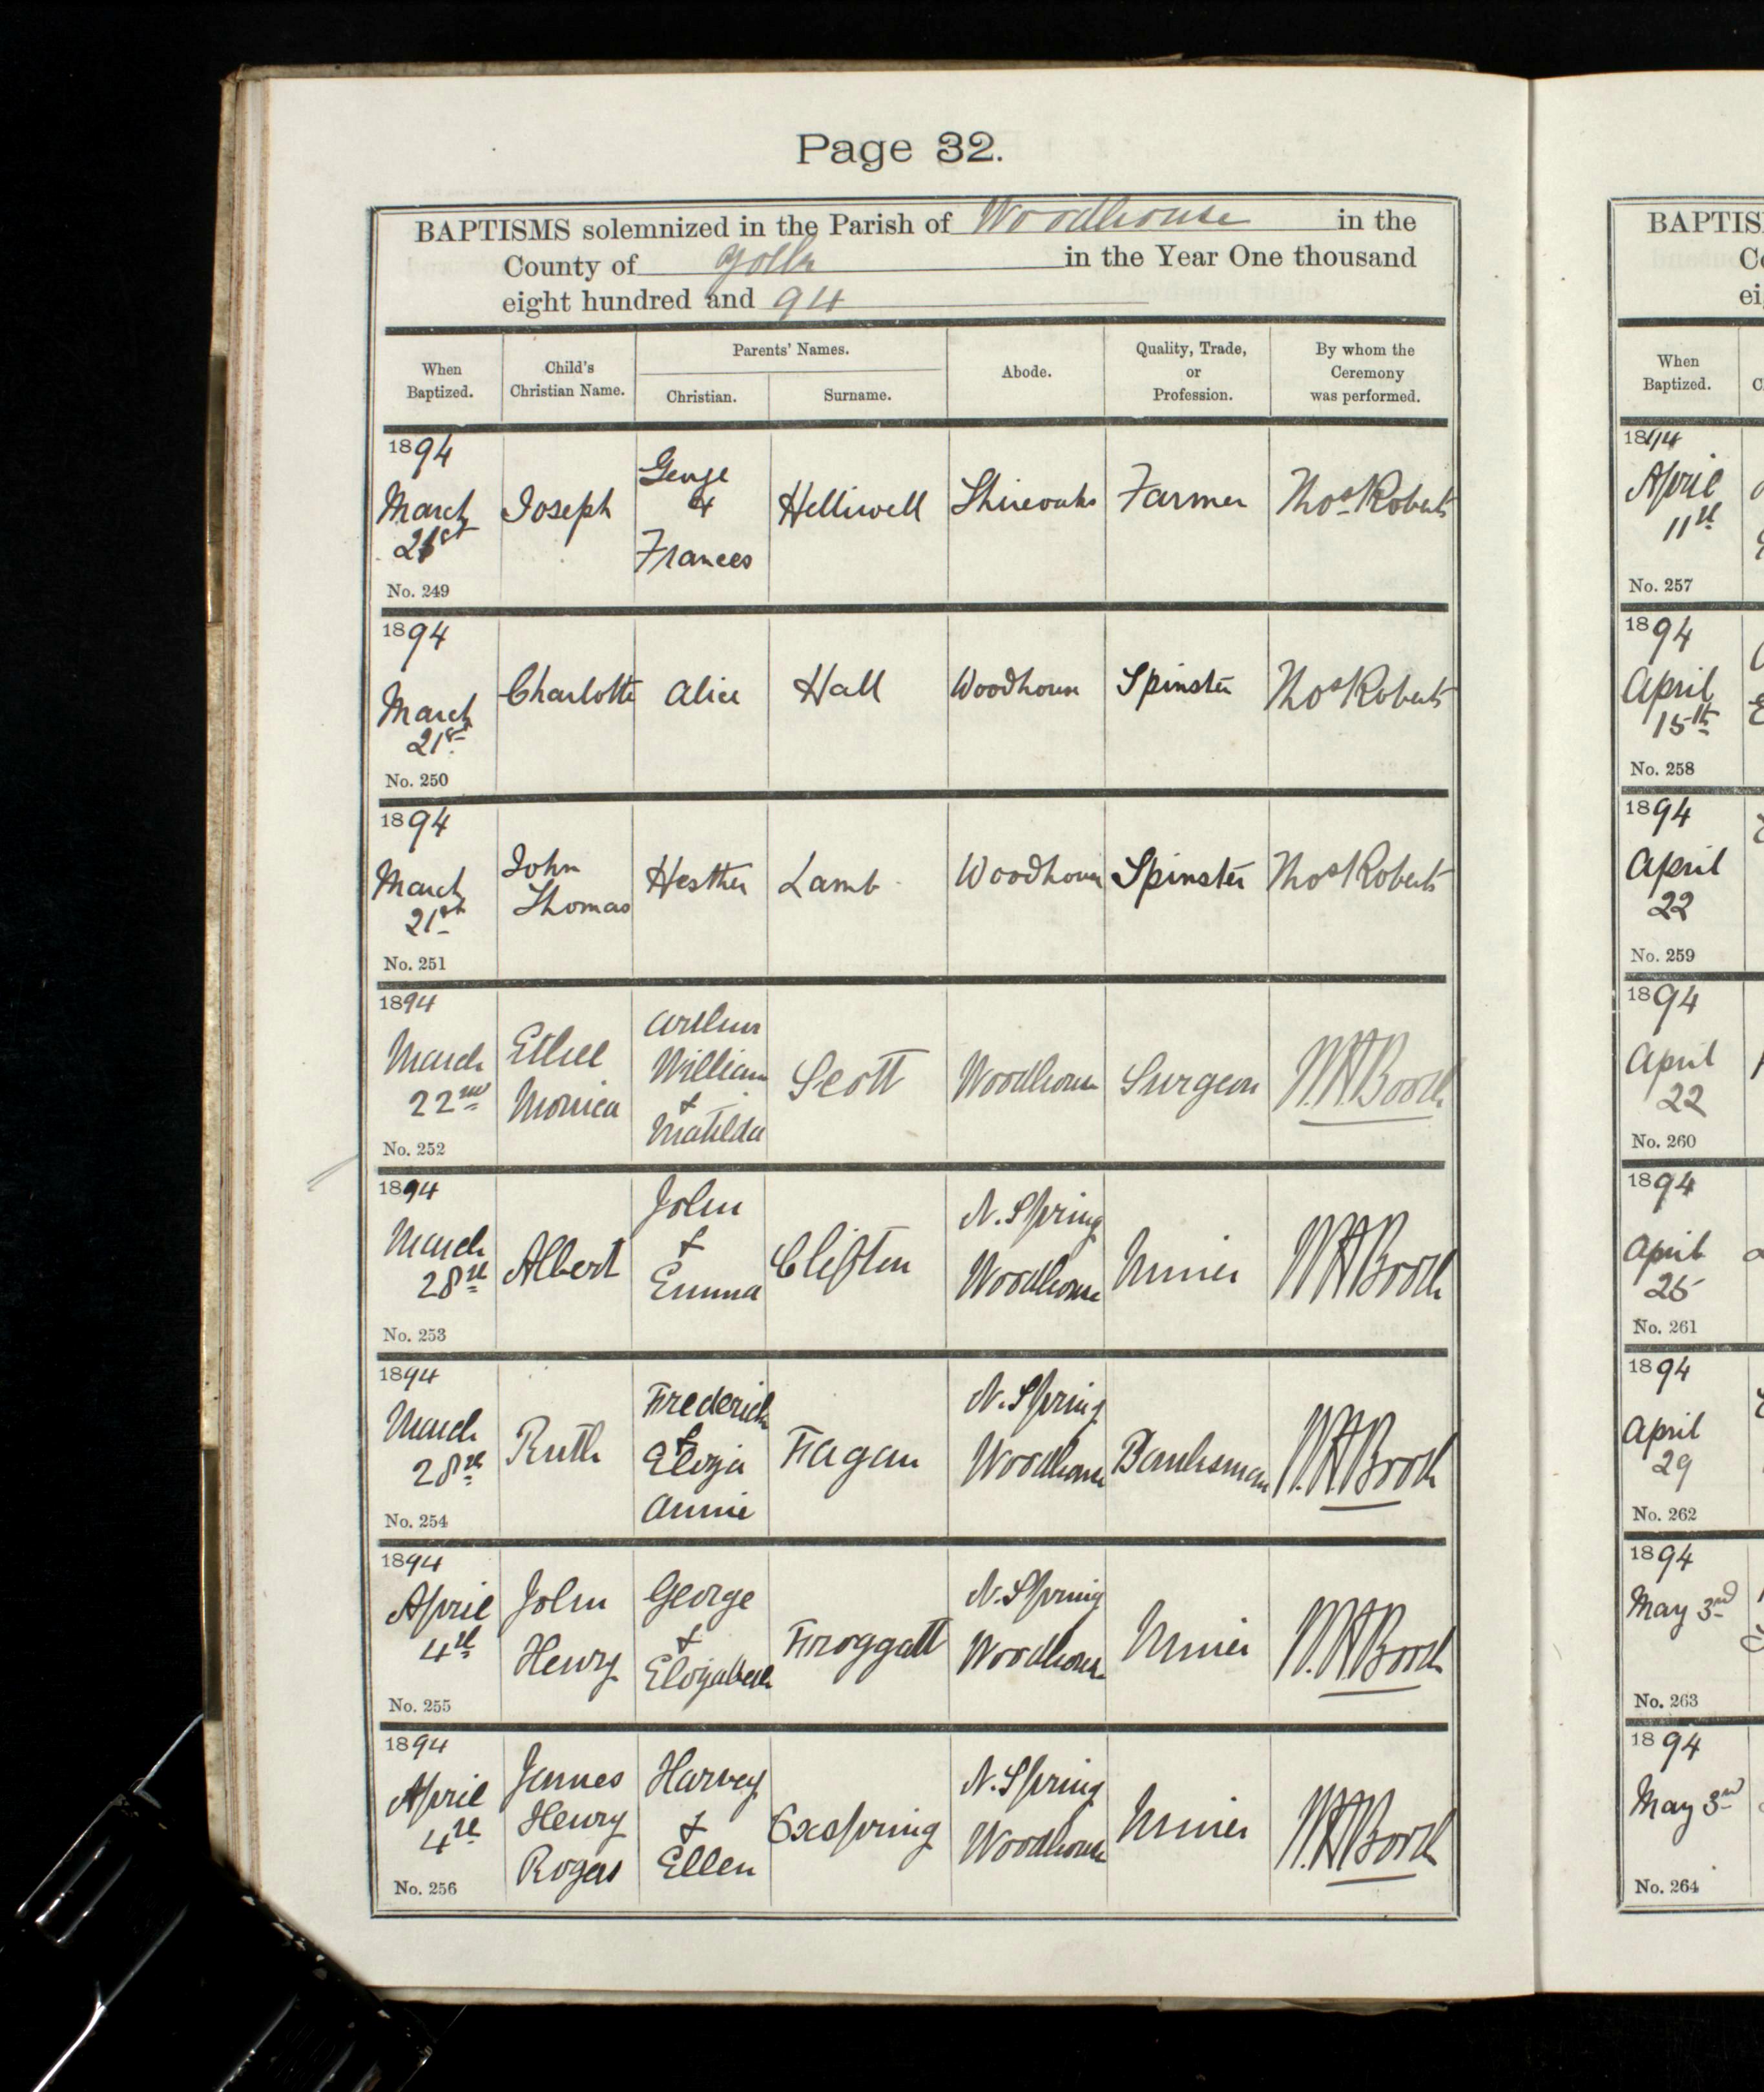 Page 32.
BAPTISMS solemnized in the Parish of Woodhouse in the
County of in the Year One thousand
eight hundred and 94
When Baptized.
Child's Christian Name.
Parents' Names.
Christian.
Surname.
Abode.
Quality, Trade, or Profession.
By whom the Ceremony was performed.
1894
March 21st
Joseph
George & Frances
Helliwell
Shireoaks
Farmer
Thos Roberts
No. 249
1894
March 21st
Charlotte
Alice
Hall
Woodhouse
Spinster
Thos Roberts
No. 250
1894
March 21st
John Thomas
Hesther
Lamb
Woodhouse
Spinster
Thos Roberts
No. 251
1894
March 22nd
Ethel Monica
Arthur William & Matilda
Scott
Woodhouse
Surgeon
W.H.Booth
No. 252
1894
March 28th
Albert
John & Emma
Clifton
N. Spring Woodhouse
Miner
W.H.Booth
No. 253
1894
March 28th
Ruth
Frederick & Eliza Annie
Fagan
N. Spring Woodhouse
Banksman
W.H.Booth
No. 254
1894
April 4th
John Henry
George & Elizabeth
Froggatt
N. Spring Woodhouse
Miner
W.H.Booth
No. 255
1894
April 4th
James Henry Rogers
Harvey & Ellen
Oxspring
N. Spring Woodhouse
Miner
W.H.Booth
No. 256
BAPTIS
Co
ei
When Baptized.
C
1894
April 11th
No. 257
1894
April 15th
No. 258
1894
April 22
No. 259
1894
April 22
No. 260
1894
April 25
No. 261
1894
April 29
No. 262
1894
May 3rd
No. 263
1894
May 3rd
No. 264